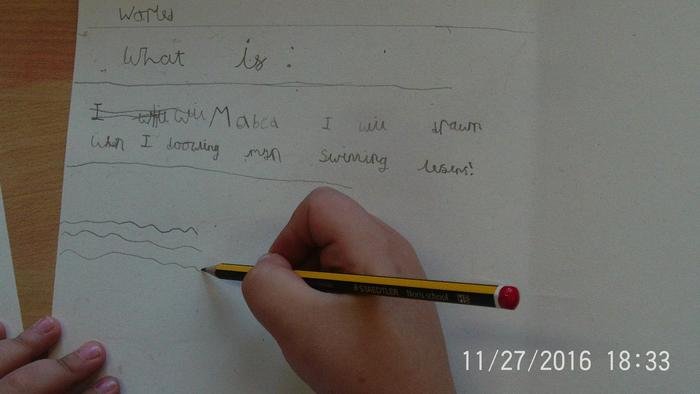 Worles
What is :
I will Mabea I will drawn
when I doowing myn swimming lesens!
STAEDTLER Noris school HB
11/27/2016 18:33